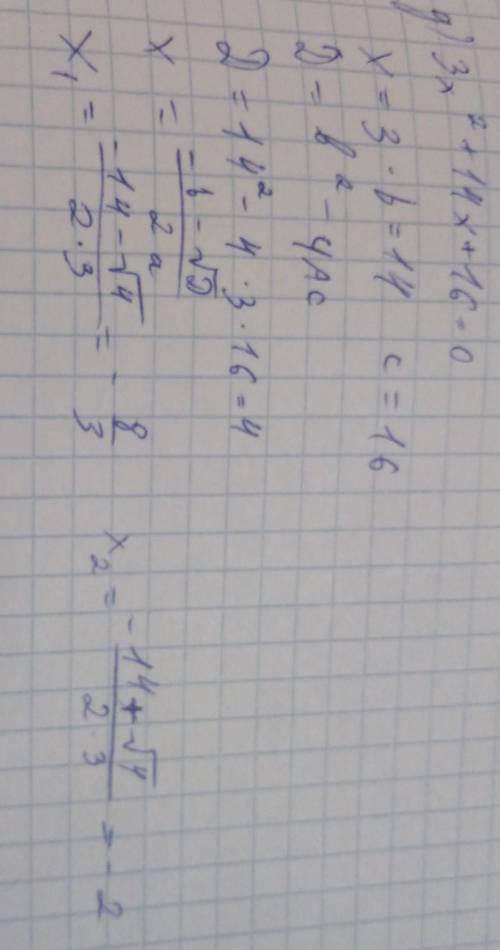 д) 3x² + 14x + 16 = 0
x = 3 · b = 14 c = 16
D = b² - 4Ac
D = 14² - 4 · 3 · 16 = 4
x = \frac{-b - √D}{2a}
x₁ = \frac{-14 - √4}{2·3} = - \frac{8}{3}
x₂ = \frac{-14 + √4}{2·3} = -2